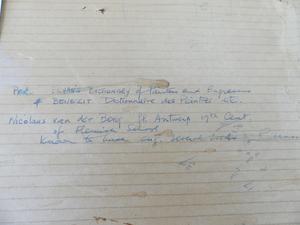 DICTIONARY of Painters and Engravers
& BENEZIT Dictionnaire des Peintres etc.
Nicolaus van der Borg fl. Antwerp 17th Cent.
of Flemish School
Known to have